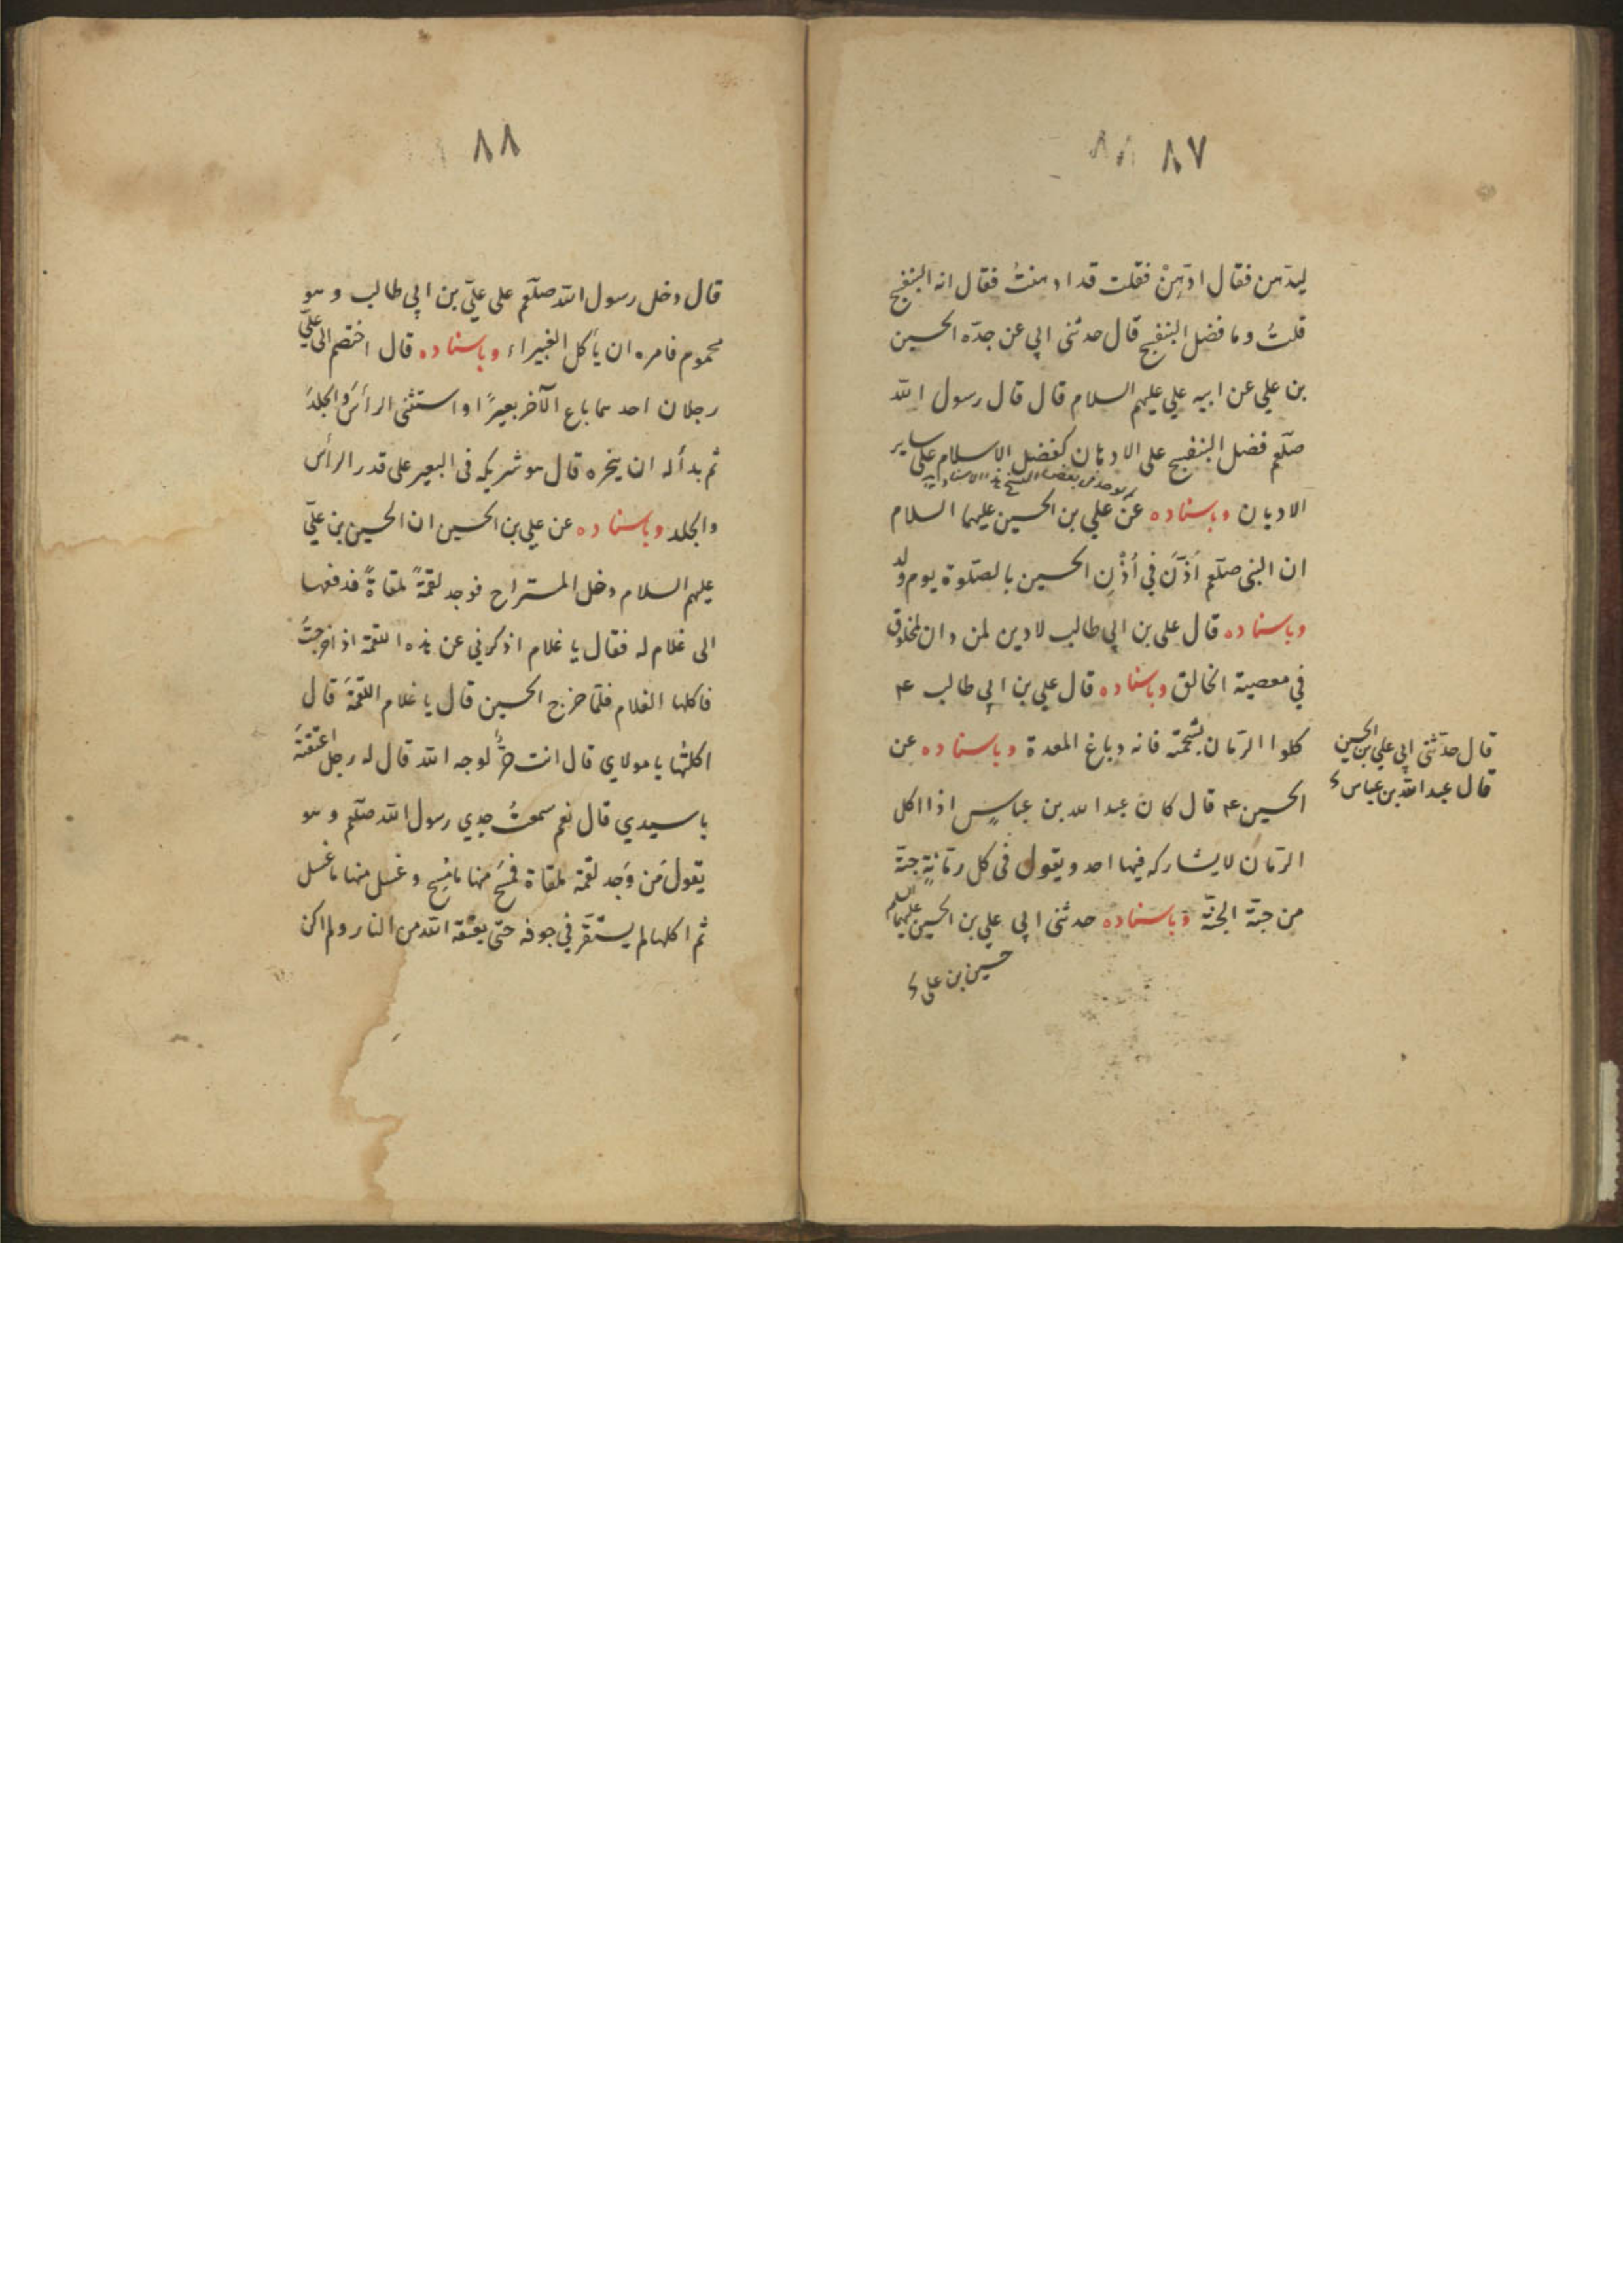 ٨٧
ليدهن فقال ادّهِنْ فقلت قد ادهنتُ فقال انه البنفسج
قلتُ وما فضل البنفسج قال حدثنى ابي عن جدّه الحسين
بن علي عن ابيه علي عليهم السلام قال قال رسول الله
صلعم فضل البنفسج على الادهان كفضل الاسلام على ساير
الاديان وباسناده عن علي بن الحسين عليهما السلام
ان النبى صلعم اَذَّنَ في اُذْنِ الحسين بالصلوة يوم ولد
وباسناده قال علي بن ابي طالب لا دين لمن دان لمخلوق
في معصية الخالق وباسناده قال علي بن ابي طالب ع
كلوا الرمّان بشحمته فانه دباغ المعدة وباسناده عن
الحسين ع قال كان عبد الله بن عباسٍ اذا اكل
الرمّان لا يشاركه فيها احد ويقول فى كل رمّانةٍ حبّة
من حبّة الجنّة وباسناده حدثنى ابي علي بن الحسين عليهما السلم
حسين بن علي
قال حدّثنى ابي علي بن الحسين
قال عبد الله بن عباس
٨٨
قال دخل رسول الله صلعم على عليّ بن ابي طالب وهو
محموم فامره ان يأكل الغبيراء وباسناده قال اختصم الى عليّ
رجلان احدهما باع الآخر بعيرًا واستثنى الرأسَ والجلدَ
ثم بدأ له ان ينحره قال هو شريكه فى البعير على قدر الرأس
والجلد وباسناده عن علي بن الحسين ان الحسين بن عليّ
عليهم السلام دخل المستراح فوجد لقمةً ملقاةً فدفعها
الى غلام له فقال يا غلام اذكرني عن هذه اللقمة اذ اخرجتُ
فاكلها الغلام فلمّا خرج الحسين قال يا غلام اللقمةَ قال
اكلتُها يا مولاي قال انت حرٌّ لوجه الله قال له رجل اعتقتَهُ
يا سيدي قال نعم سمعتُ جدي رسول الله صلعم وهو
يقول مَن وَجد لقمة ملقاة فمسَحَ منها ما مُسِح وغسل منها ما غسل
ثم اكلها لم يستقرّ في جوفه حتى يعتقه الله من النار ولم اكن